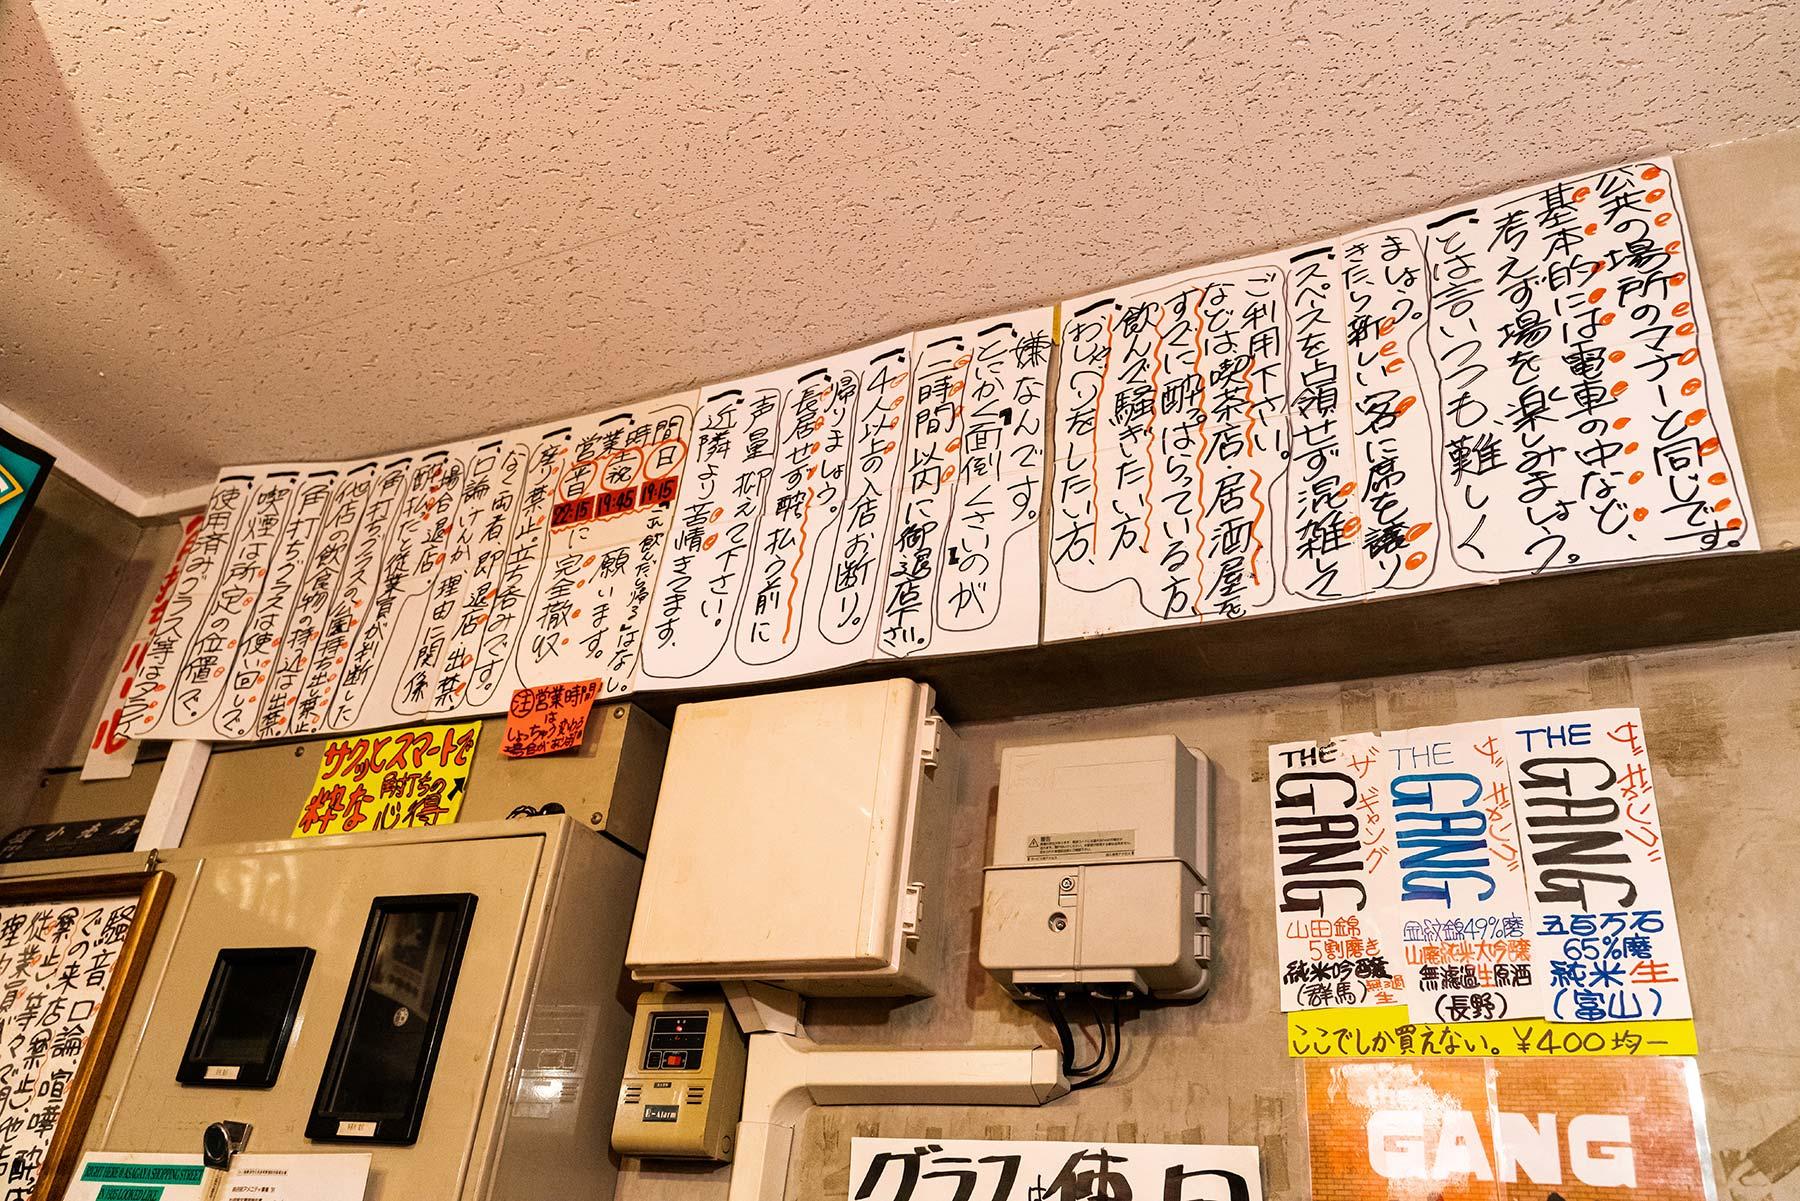 公共の場所のマナーと同じです。
基本的には電車の中など、
考えず場を楽しみましょう。
とは言いつつも難しく
一、
ましょう。
きたら新しい客に席を譲り
スペースを占領せず混雑して
一、
ご利用下さい。
などは喫茶店・居酒屋を
すでに酔っぱらっている方、
飲んで騒ぎたい方、
おしゃべりをしたい方、
一、
嫌なんです。
とにかく面倒くさいのが
一、
一、二時間以内に御退店下さい。
一、4人以上の入店お断り。
帰りましょう。
一、長居せず酔っ払う前に
声量抑えて下さい。
一、近隣より苦情きてます、
営業時間
平日 22:15
土祝 19:45
日 19:15
に完全撤収
願います。
「これ飲んだら帰る」はなし。
一、座り禁止。立ち呑みです。
なく両者即退店、出禁。
一、口論、けんか、理由に関係
場合退店。
一、酔払だと従業員が判断した
一、角打ちグラスの公園持ち出し禁止。
一、他店の飲食物の持ち込は出禁。
一、角打ちグラスは使い回しで。
一、喫煙は所定の位置で。
一、使用済みグラス等はタライへ
ルール
注 営業時間
は
しょっちゅう変わる
場合があります
サクッとスマートで
粋な角打ちの
心得
THE
GANG
ザ ギャング
山田錦
5割磨き
純米吟醸
(群馬)
無ろ過
生
THE
GANG
ザ ギャング
金紋錦49%磨
山廃純米大吟醸
無濾過生原酒
(長野)
THE
GANG
ザ ギャング
五百万石
65%磨
純米 生
(富山)
ここでしか買えない。¥400均一
the
GANG
E-Alarm
騒音、口論、喧嘩、酔
での来店(禁止)
RIGHT HERE @ ASAGAYA SHOPPING STREET
IN 1925 LOOKED LIKE
グラス